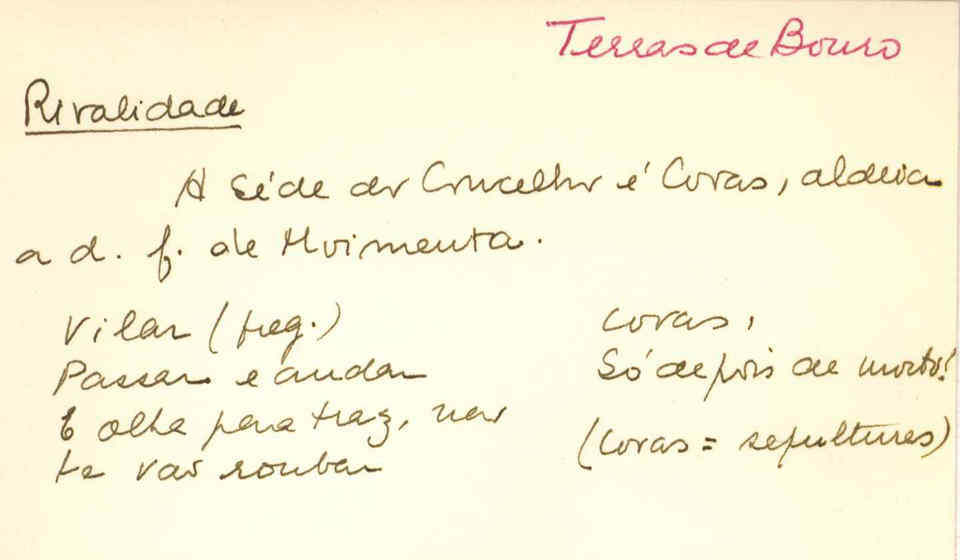 Terras de Bouro
Rivalidade
A séde do Concelho é Covas, aldeia
a d. f. de Moimenta.
Vilar (freg.)
Passar e andar
E olha para traz, não
te vão roubar
Covas,
Só depois de morto!
(Covas = sepulturas)